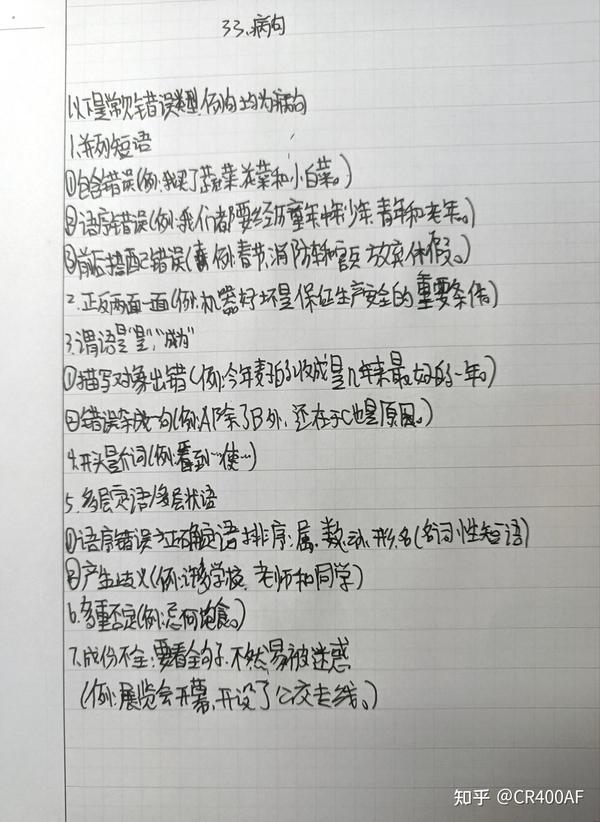 33.病句
以下是常见错误类型,例句均为病句
1.并列短语
①包含错误(例:我买了蔬菜、花菜和小白菜。)
②语序错误(例:我们都要经历童年、中年、少年、青年和老年。)
③前后搭配错误(例:春节,消防车和官兵放弃休假。)
2.正反两面一面(例:机器好坏是保证生产安全的重要条件)
3.谓语是"是"、"成为"
①描写对象出错(例:今年麦子的收成是几年来最好的一年。)
②错误杂成一句(例:A除了B外,还在于C也是原因。)
4.开头是介词(例:看到…使…)
5.多层定语/多层状语
①语序错误 正确定语排序:属、数、动、形、名(名词性短语)
②产生歧义(例:许多学校、老师和同学)
6.多重否定(例:忌何饱食。)
7.成份不全:要看全句子,不然易被迷惑
(例:展览会开幕,开设了公交专线。)
知乎 @CR400AF